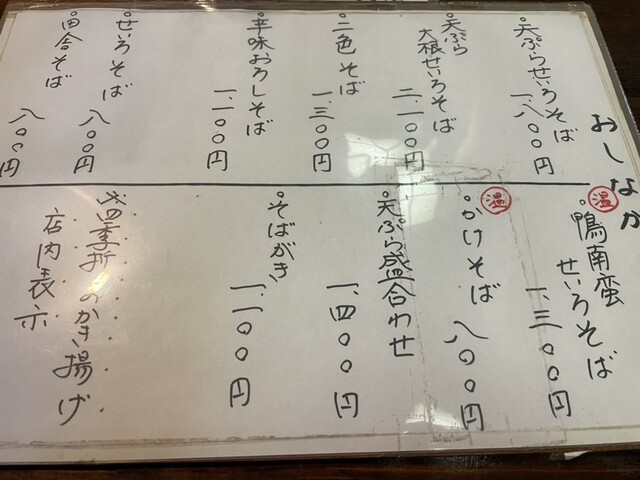 おしながき
天ぷらせいろそば
一、八〇〇円
天ぷら
大根せいろそば
二、一〇〇円
二色そば
一、三〇〇円
辛味おろしそば
一、一〇〇円
せいろそば
八〇〇円
田舎そば
八〇〇円
温
鴨南蛮
せいろそば
一、三〇〇円
温
かけそば
八〇〇円
天ぷら盛合わせ
一、四〇〇円
そばがき
一、一〇〇円
四季折々のかき揚げ
店内表示